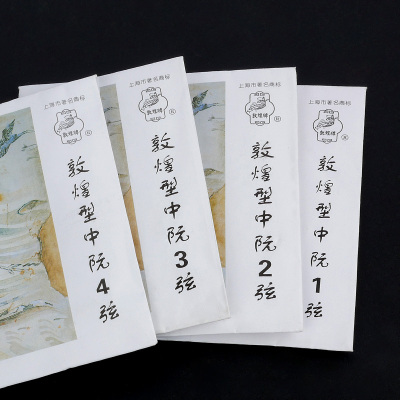 上海市著名商标
敦煌牌
敦煌型中阮4弦
上海市著名商标
敦煌牌
敦煌型中阮3弦
上海市著名商标
敦煌牌
敦煌型中阮2弦
上海市著名商标
敦煌牌
敦煌型中阮1弦